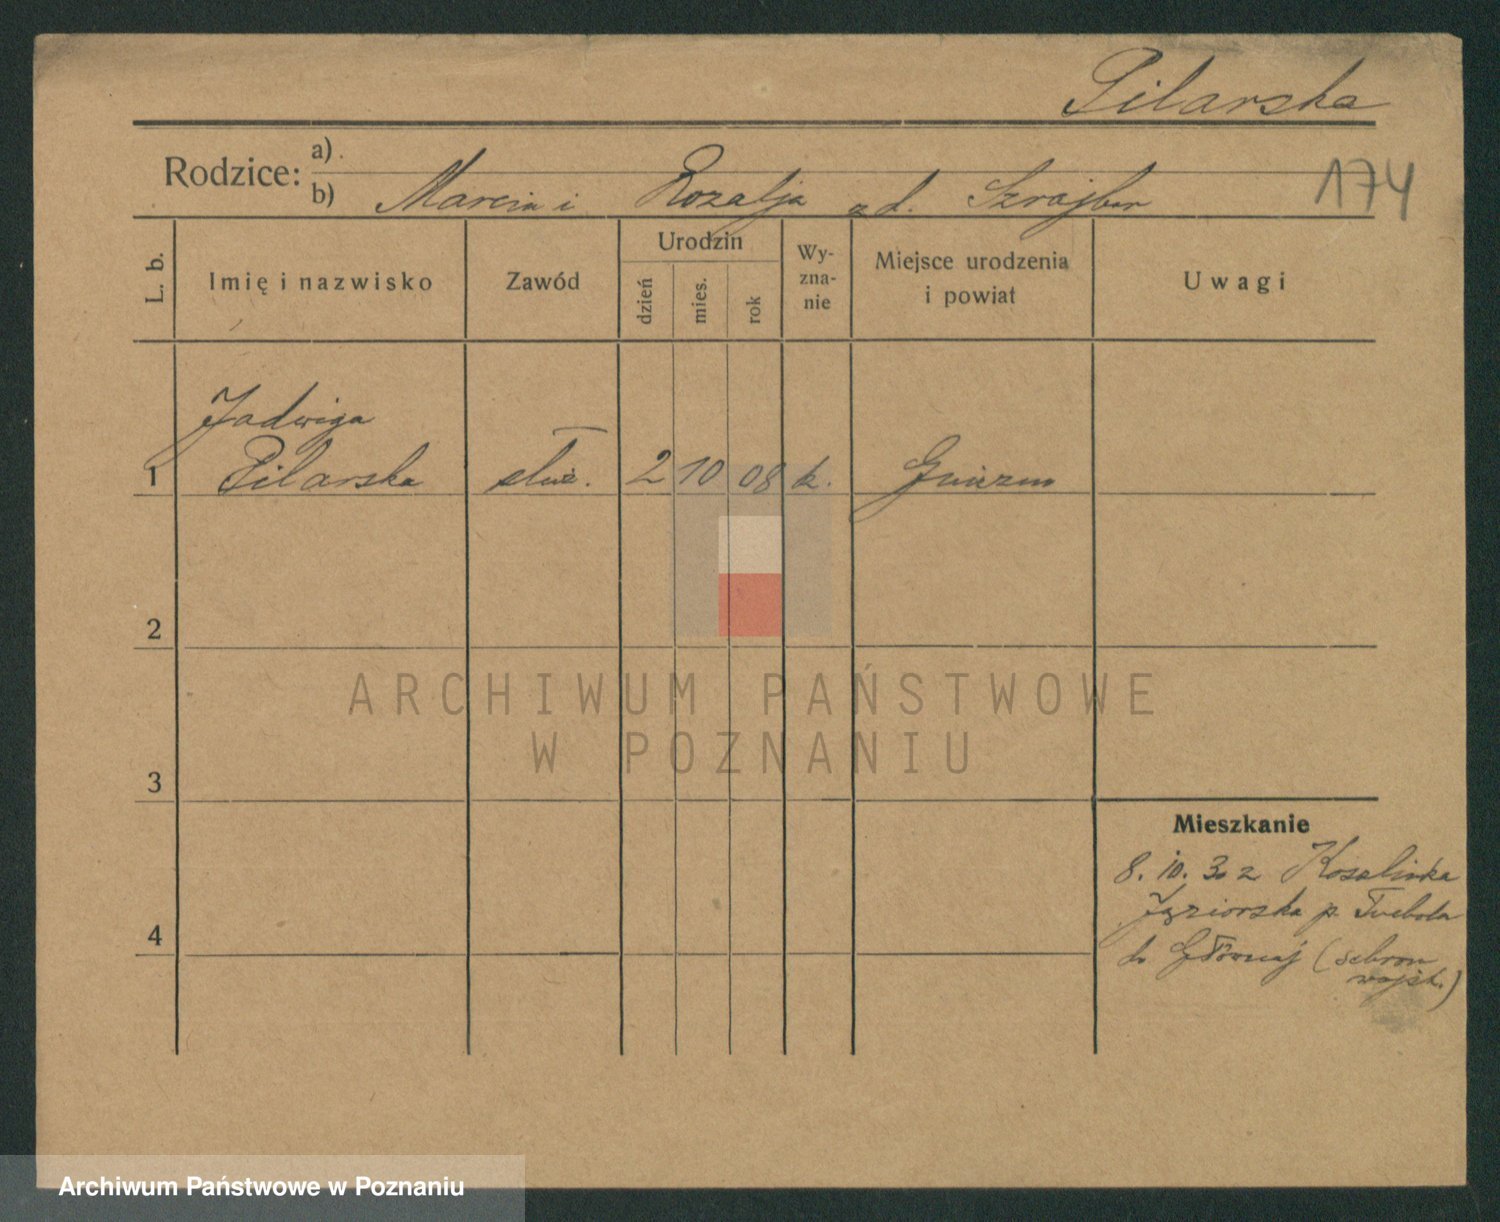 Pilarska
Rodzice:
a)
b) Marcin i Rozalja z d. Szrajber
174
L. b.
Imię i nazwisko
Zawód
Urodzin
dzień
mies.
rok
Wy-
zna-
nie
Miejsce urodzenia
i powiat
Uwagi
Jadwiga
1 Pilarska służ. 2 10 08 k. Gniezno
2
ARCHIWUM PAŃSTWOWE
W POZNANIU
3
Mieszkanie
8. 10. 30 z
p.
4
do Głównej (schron
wojsk.)
Archiwum Państwowe w Poznaniu